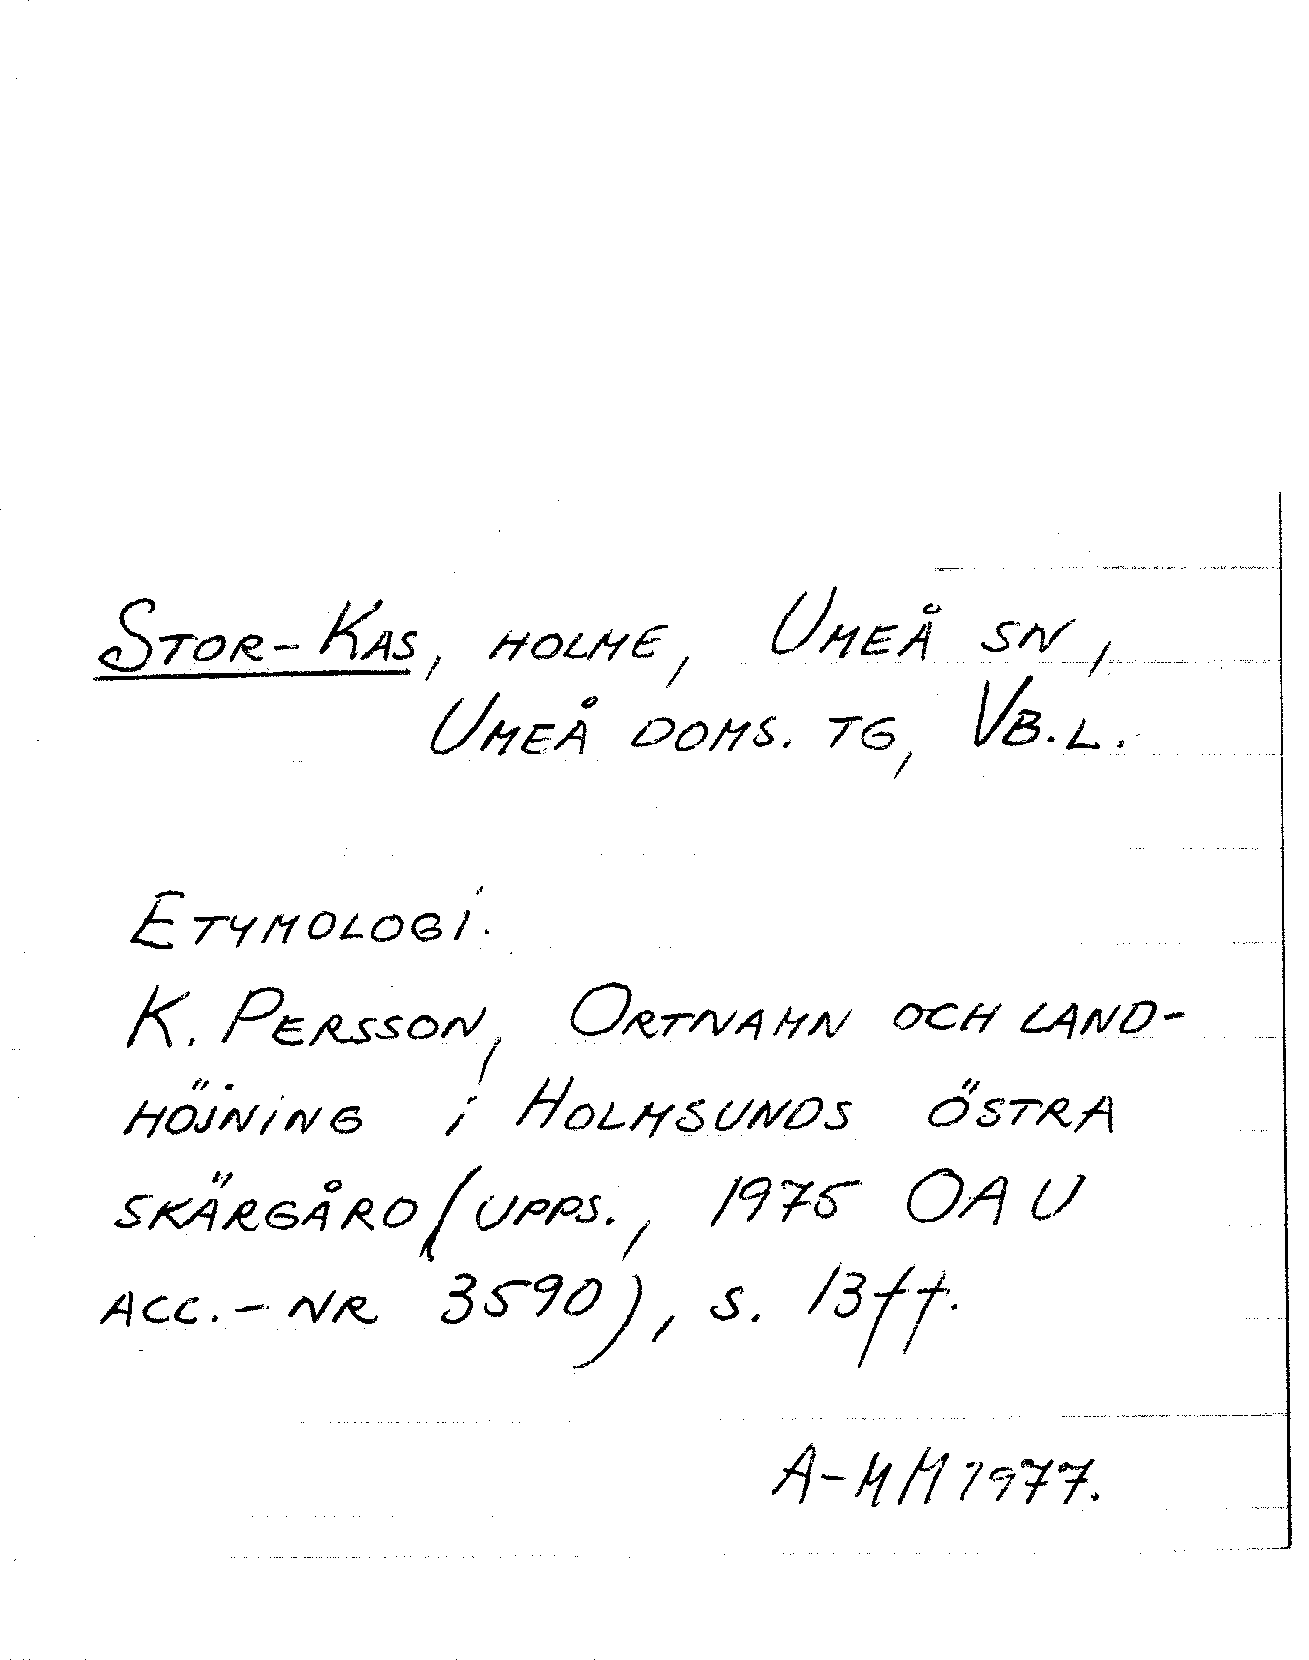 STOR-KAS, HOLME, UMEÅ SN,
UMEÅ DOMS. TG, VB.L.
ETYMOLOGI.
K. PERSSON, ORTNAMN OCH LAND-
HÖJNING i HOLMSUNDS ÖSTRA
SKÄRGÅRD (UPPS., 1975 OAU
ACC.-NR 3590), S. 13ff.
A-MM 1977.